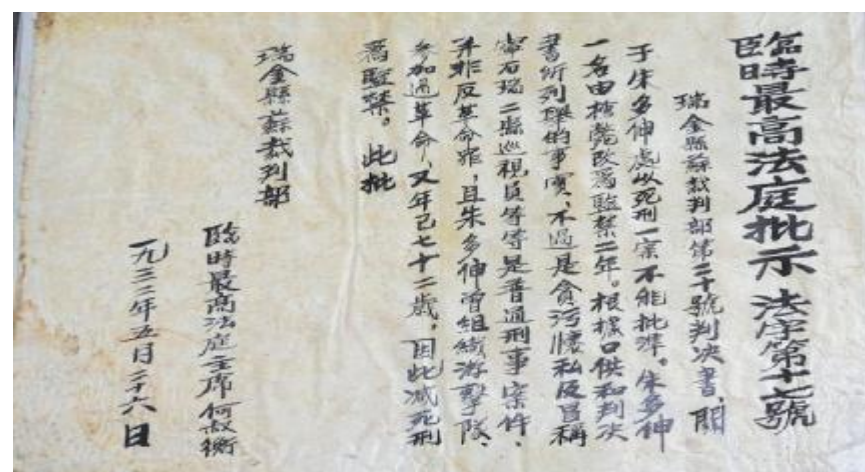 臨時最高法庭批示 法字第十七號
瑞金縣蘇裁判部第二十號判决書，關
于朱多伸處以死刑一案不能批准。朱多伸
一名由槍斃改爲監禁二年。根據口供和判决
書所列舉的事實，不過是貪污懷私及冒稱
寧石瑞三縣巡視員等等是普通刑事案件，
并非反革命罪，且朱多伸曾組織游擊隊、
參加過革命，又年已七十二歲，因此减死刑
爲監禁。此批
瑞金縣蘇裁判部
臨時最高法庭主席何叔衡
一九三二年五月二十六日